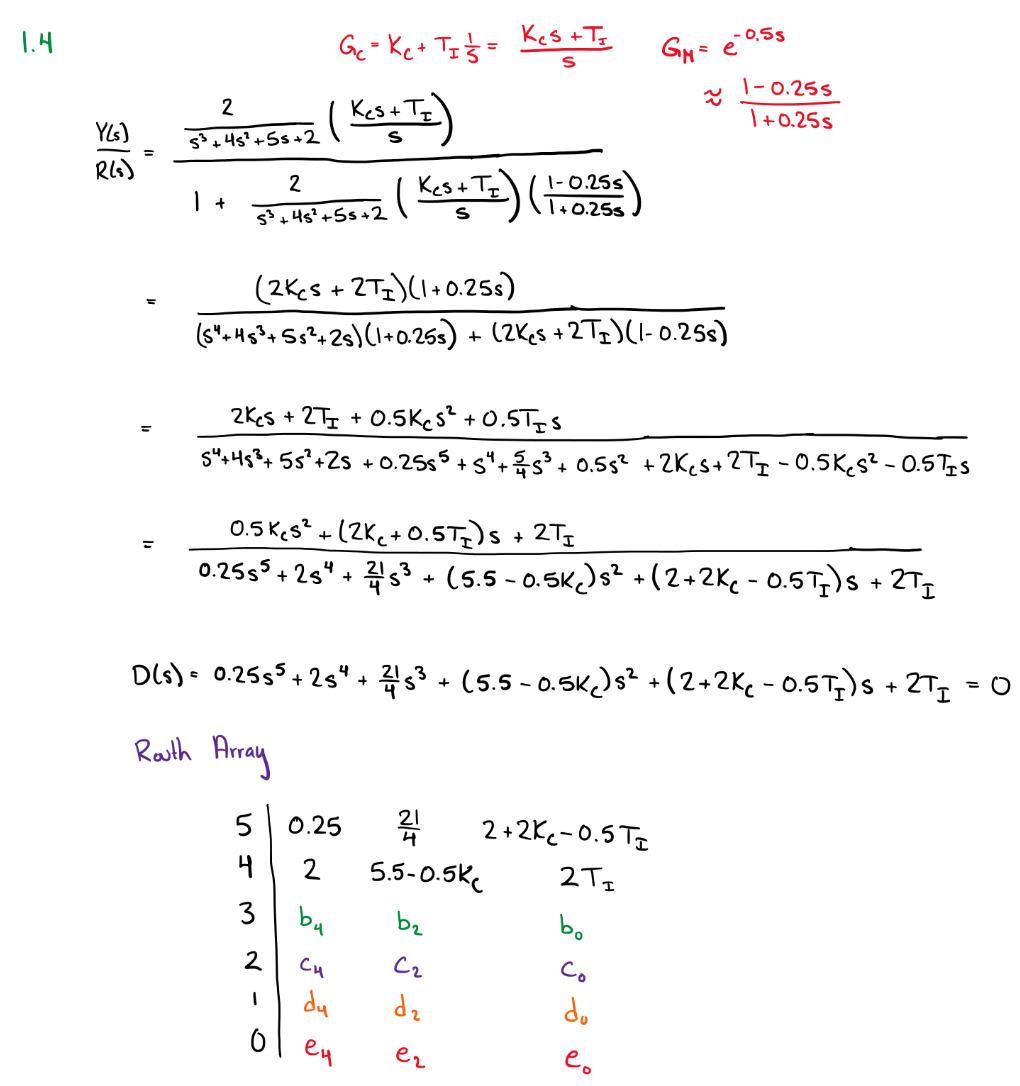 1.4
G_C = K_C + T_I 1/s = (K_C s + T_I)/s    G_M = e^(-0.5s)
≈ (1 - 0.25s)/(1 + 0.25s)
Y(s)/R(s) = [2/(s³ + 4s² + 5s + 2) ((K_C s + T_I)/s)] / [1 + 2/(s³ + 4s² + 5s + 2) ((K_C s + T_I)/s) ((1 - 0.25s)/(1 + 0.25s))]
= (2K_C s + 2T_I)(1 + 0.25s) / [(s⁴ + 4s³ + 5s² + 2s)(1 + 0.25s) + (2K_C s + 2T_I)(1 - 0.25s)]
= [2K_C s + 2T_I + 0.5K_C s² + 0.5T_I s] / [s⁴ + 4s³ + 5s² + 2s + 0.25s⁵ + s⁴ + 5/4 s³ + 0.5s² + 2K_C s + 2T_I - 0.5K_C s² - 0.5T_I s]
= [0.5K_C s² + (2K_C + 0.5T_I)s + 2T_I] / [0.25s⁵ + 2s⁴ + 21/4 s³ + (5.5 - 0.5K_C)s² + (2 + 2K_C - 0.5T_I)s + 2T_I]
D(s) = 0.25s⁵ + 2s⁴ + 21/4 s³ + (5.5 - 0.5K_C)s² + (2 + 2K_C - 0.5T_I)s + 2T_I = 0
Routh Array
5 | 0.25    21/4    2 + 2K_C - 0.5T_I
4 | 2    5.5 - 0.5K_C    2T_I
3 | b₄    b₂    b₀
2 | c₄    c₂    c₀
1 | d₄    d₂    d₀
0 | e₄    e₂    e₀